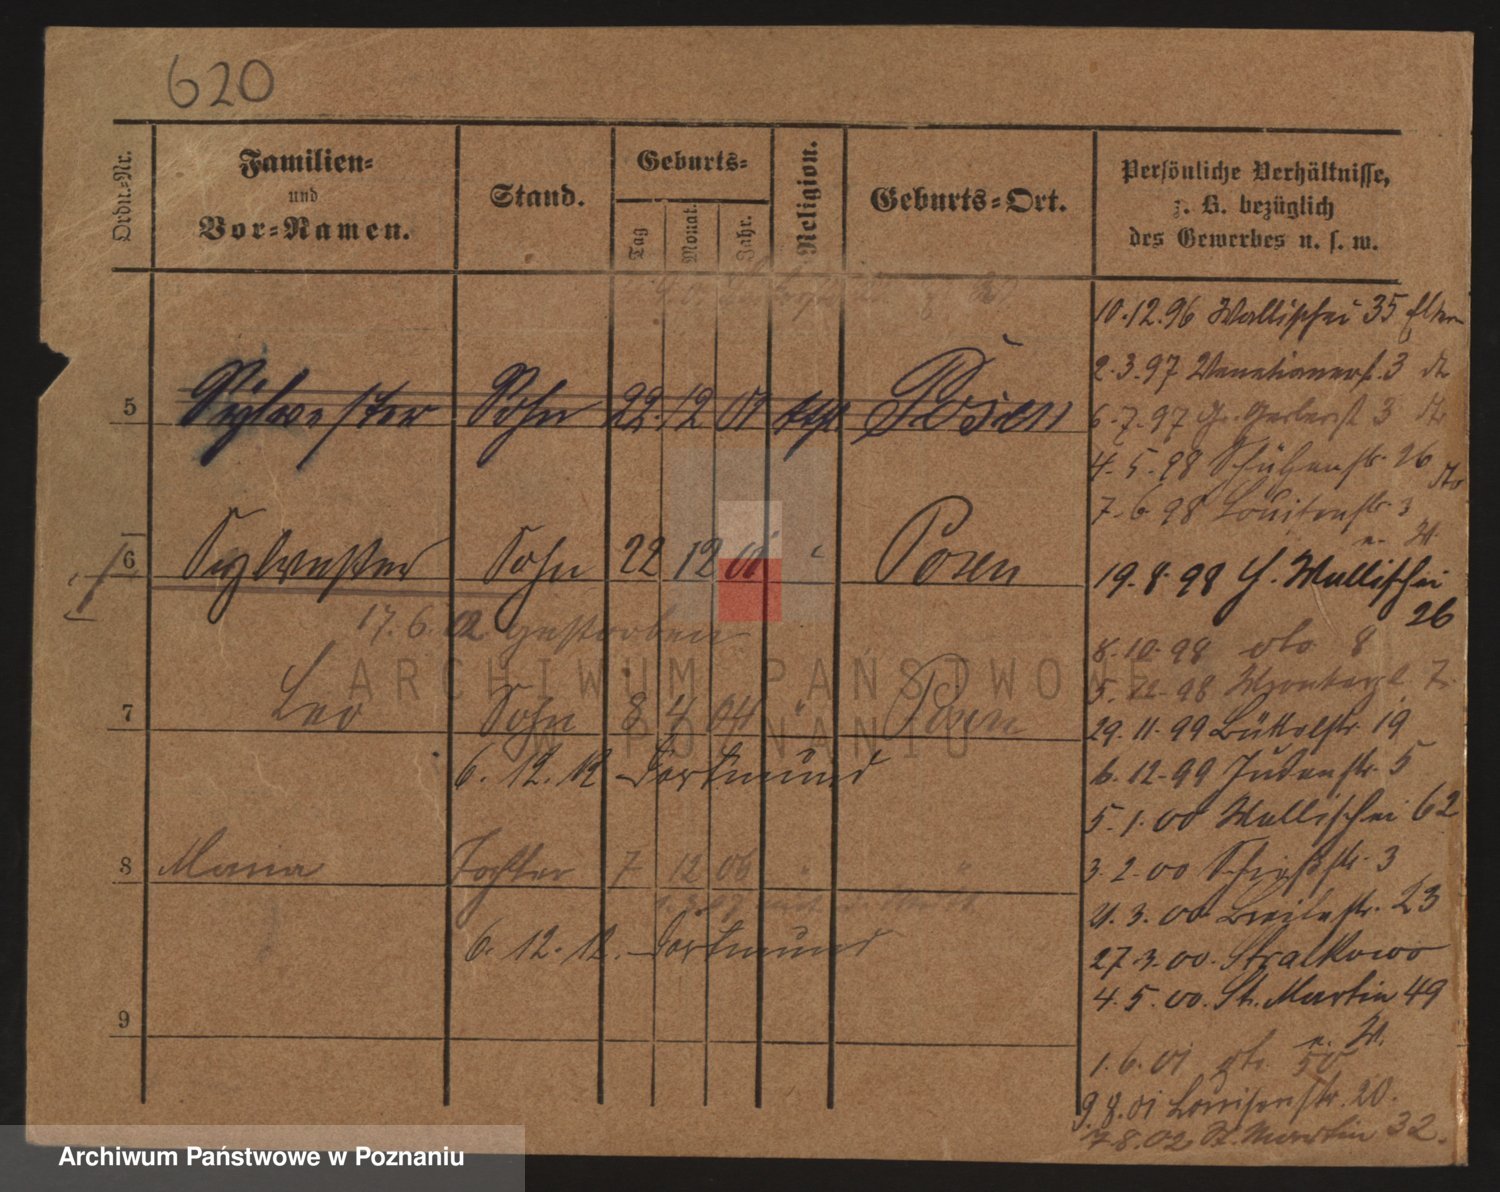 620
Ordn.-Nr.
Familien-
und
Vor-Namen.
Stand.
Geburts-
Tag
Monat.
Jahr.
Religion.
Geburts-Ort.
Persönliche Verhältnisse,
z. B. bezüglich
des Gewerbes u. s. w.
5 Sylvester Sohn 22 12 01 ktl Posen
6 Sylvester Sohn 22 12 01 " Posen
17.6.02 gestorben
7 Leo Sohn 8 4 04 " Posen
6. 12. 12 Dortmund
8 Maria Tochter 7 12 06 " "
6. 12. 12. Dortmund
9
10.12.96 Wallischei 35 Eltern
2.3.97 Venetianerst. 3 do
6.7.97 Gr. Gerberst 3 do
4.5.98 Schützenstr. 26 do
7.6.98 Louisenstr. 3
19.8.98 Wallischei
26
8.10.98 dto 8
29.11.99 Büttelstr. 19
6.12.99 Judenstr. 5
5.1.00 Wallischei 62
3.2.00 Schießstr. 3
21.3.00 Breitestr. 23
27.3.00. Stralkowo
4.5.00. St. Martin 49
1.6.01 50
9.8.01 Louisenstr. 20.
7.8.02 St. Martin 32.
ARCHIWUM PAŃSTWOWE
W POZNANIU
Archiwum Państwowe w Poznaniu